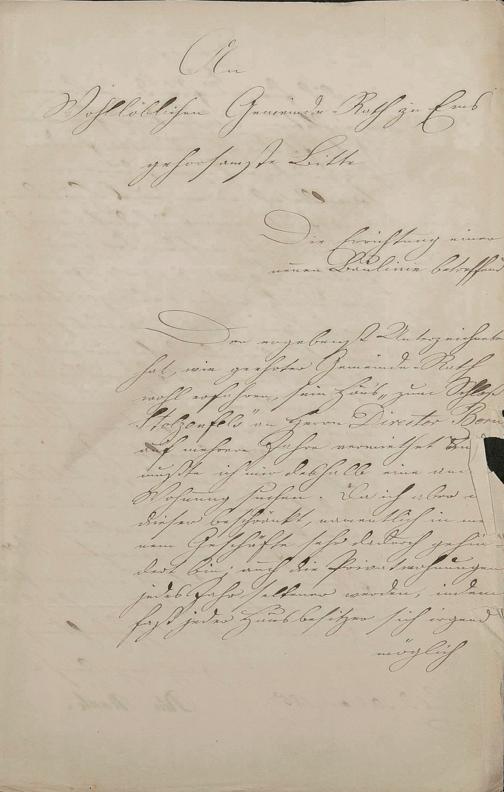 An
Wohllöblichen Gemeinde-Rath zu Ems
gehorsamste Bitte
Die Errichtung einer
neuen Baulinie betreffend
Der ergebenst Unterzeichnete
hat, wie geehrter Gemeinde-Rath
wohl erfahren, sein Haus „zum Schloß
Stolzenfels" an Herrn Director
auf mehrere Jahre vermiethet und
mußte ich mir deshalb eine
Wohnung suchen. Da ich aber
dieser beschränkt, namentlich in
nem Geschäfte sehr dadurch gehin-
dert bin, auch die Privatwohnungen
jedes Jahr seltener werden, indem
fast jeder Hausbesitzer sich irgend
möglich